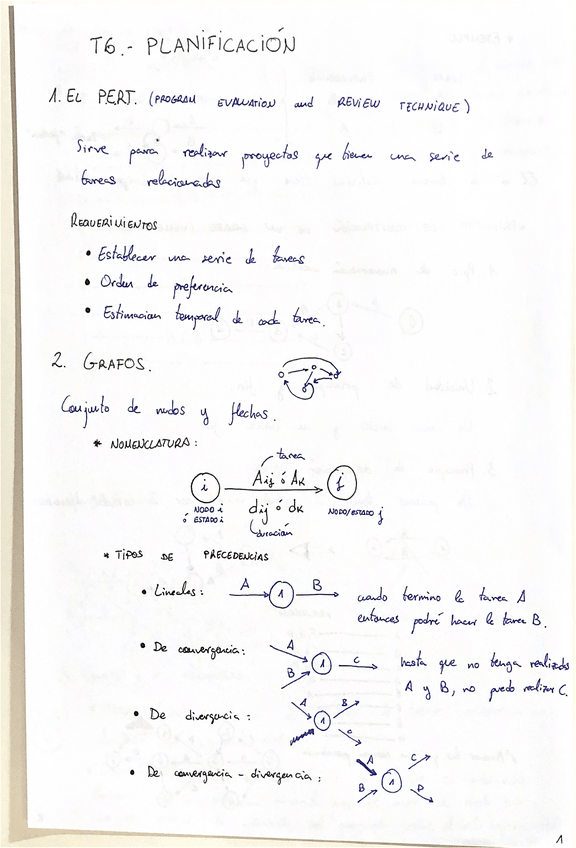 T6.- PLANIFICACIÓN
1. EL P.E.R.T. (PROGRAM EVALUATION and REVIEW TECHNIQUE)
Sirve para realizar proyectos que tienen una serie de
tareas relacionadas
REQUERIMIENTOS
• Establecer una serie de tareas
• Orden de preferencia
• Estimacion temporal de cada tarea.
2. GRAFOS.
Conjunto de nudos y flechas.
* NOMENCLATURA:
tarea
i Aij ó Ak j
NODO i dij ó dk NODO/ESTADO j
ó ESTADO i duración
* TIPOS DE PRECEDENCIAS
• Lineales: A 1 B cuando termino la tarea A
entonces podré hacer la tarea B.
• De convergencia: A B 1 C hasta que no tenga realizadas
A y B, no puedo realizar C.
• De divergencia: A 1 B C
• De convergencia - divergencia: A B 1 C D
1